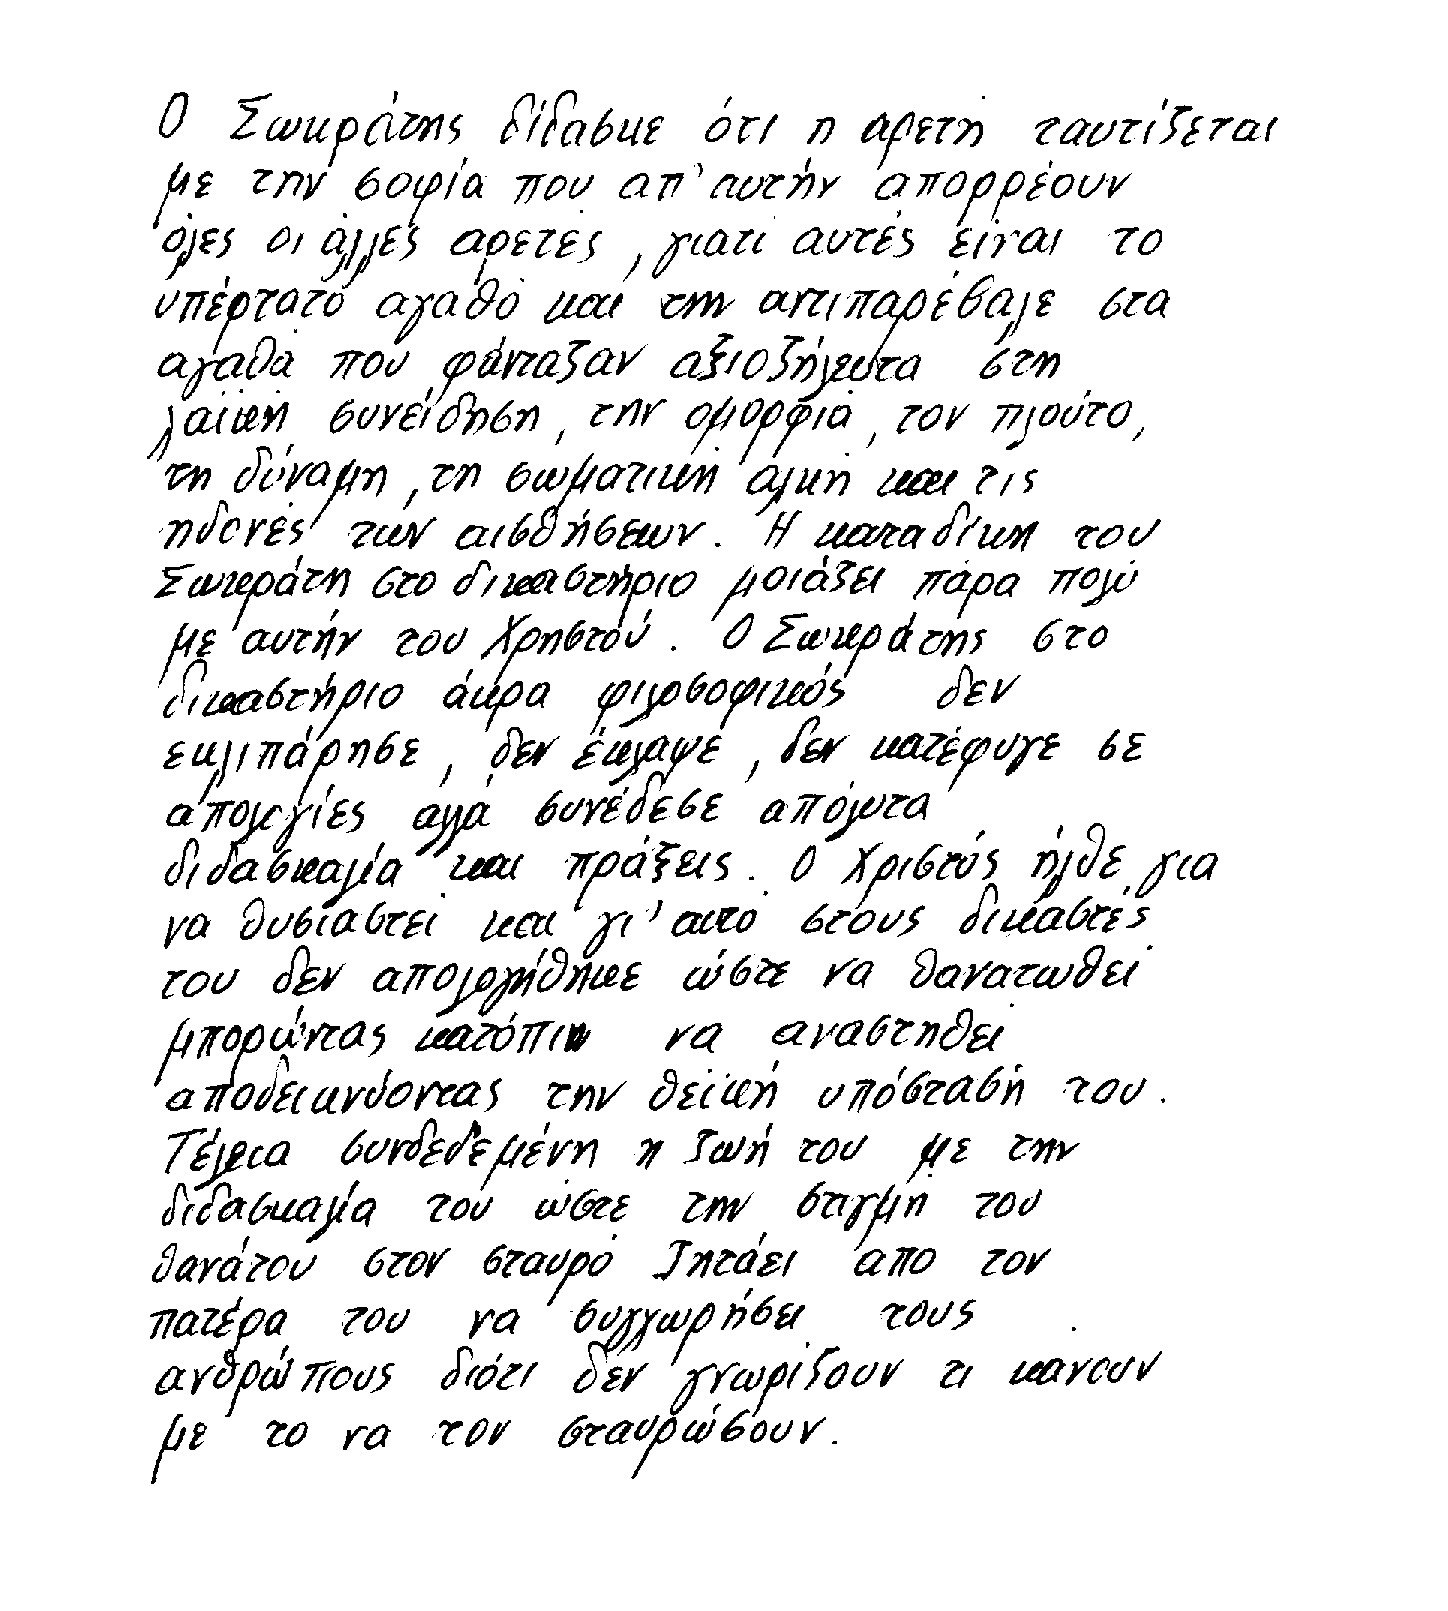 Ο Σωκράτης δίδασκε ότι η αρετή ταυτίζεται
με την σοφία που απ' αυτήν απορρέουν
όλες οι άλλες αρετές, γιατί αυτές είναι το
υπέρτατο αγαθό και την αντιπαρέβαλε στα
αγαθά που φάνταζαν αξιοζήλευτα στη
λαϊκή συνείδηση, την ομορφιά, τον πλούτο,
τη δύναμη, τη σωματική αλκή και τις
ηδονές των αισθήσεων. Η καταδίκη του
Σωκράτη στο δικαστήριο μοιάζει πάρα πολύ
με αυτήν του Χρηστού. Ο Σωκράτης στο
δικαστήριο άκρα φιλοσοφικός δεν
εκλιπάρησε, δεν έκλαψε, δεν κατέφυγε σε
απολογίες αλλά συνέδεσε απόλυτα
διδασκαλία και πράξεις. Ο Χριστός ήλθε για
να θυσιαστεί και γι' αυτό στους δικαστές
του δεν απολογήθηκε ώστε να θανατωθεί
μπορώντας κατόπιν να αναστηθεί
αποδεικνύοντας την θεϊκή υπόστασή του.
Τέλεια συνδεδεμένη η ζωή του με την
διδασκαλία του ώστε την στιγμή του
θανάτου στον σταυρό ζητάει απο τον
πατέρα του να συγχωρήσει τους
ανθρώπους διότι δεν γνωρίζουν τι κανουν
με το να τον σταυρώσουν.